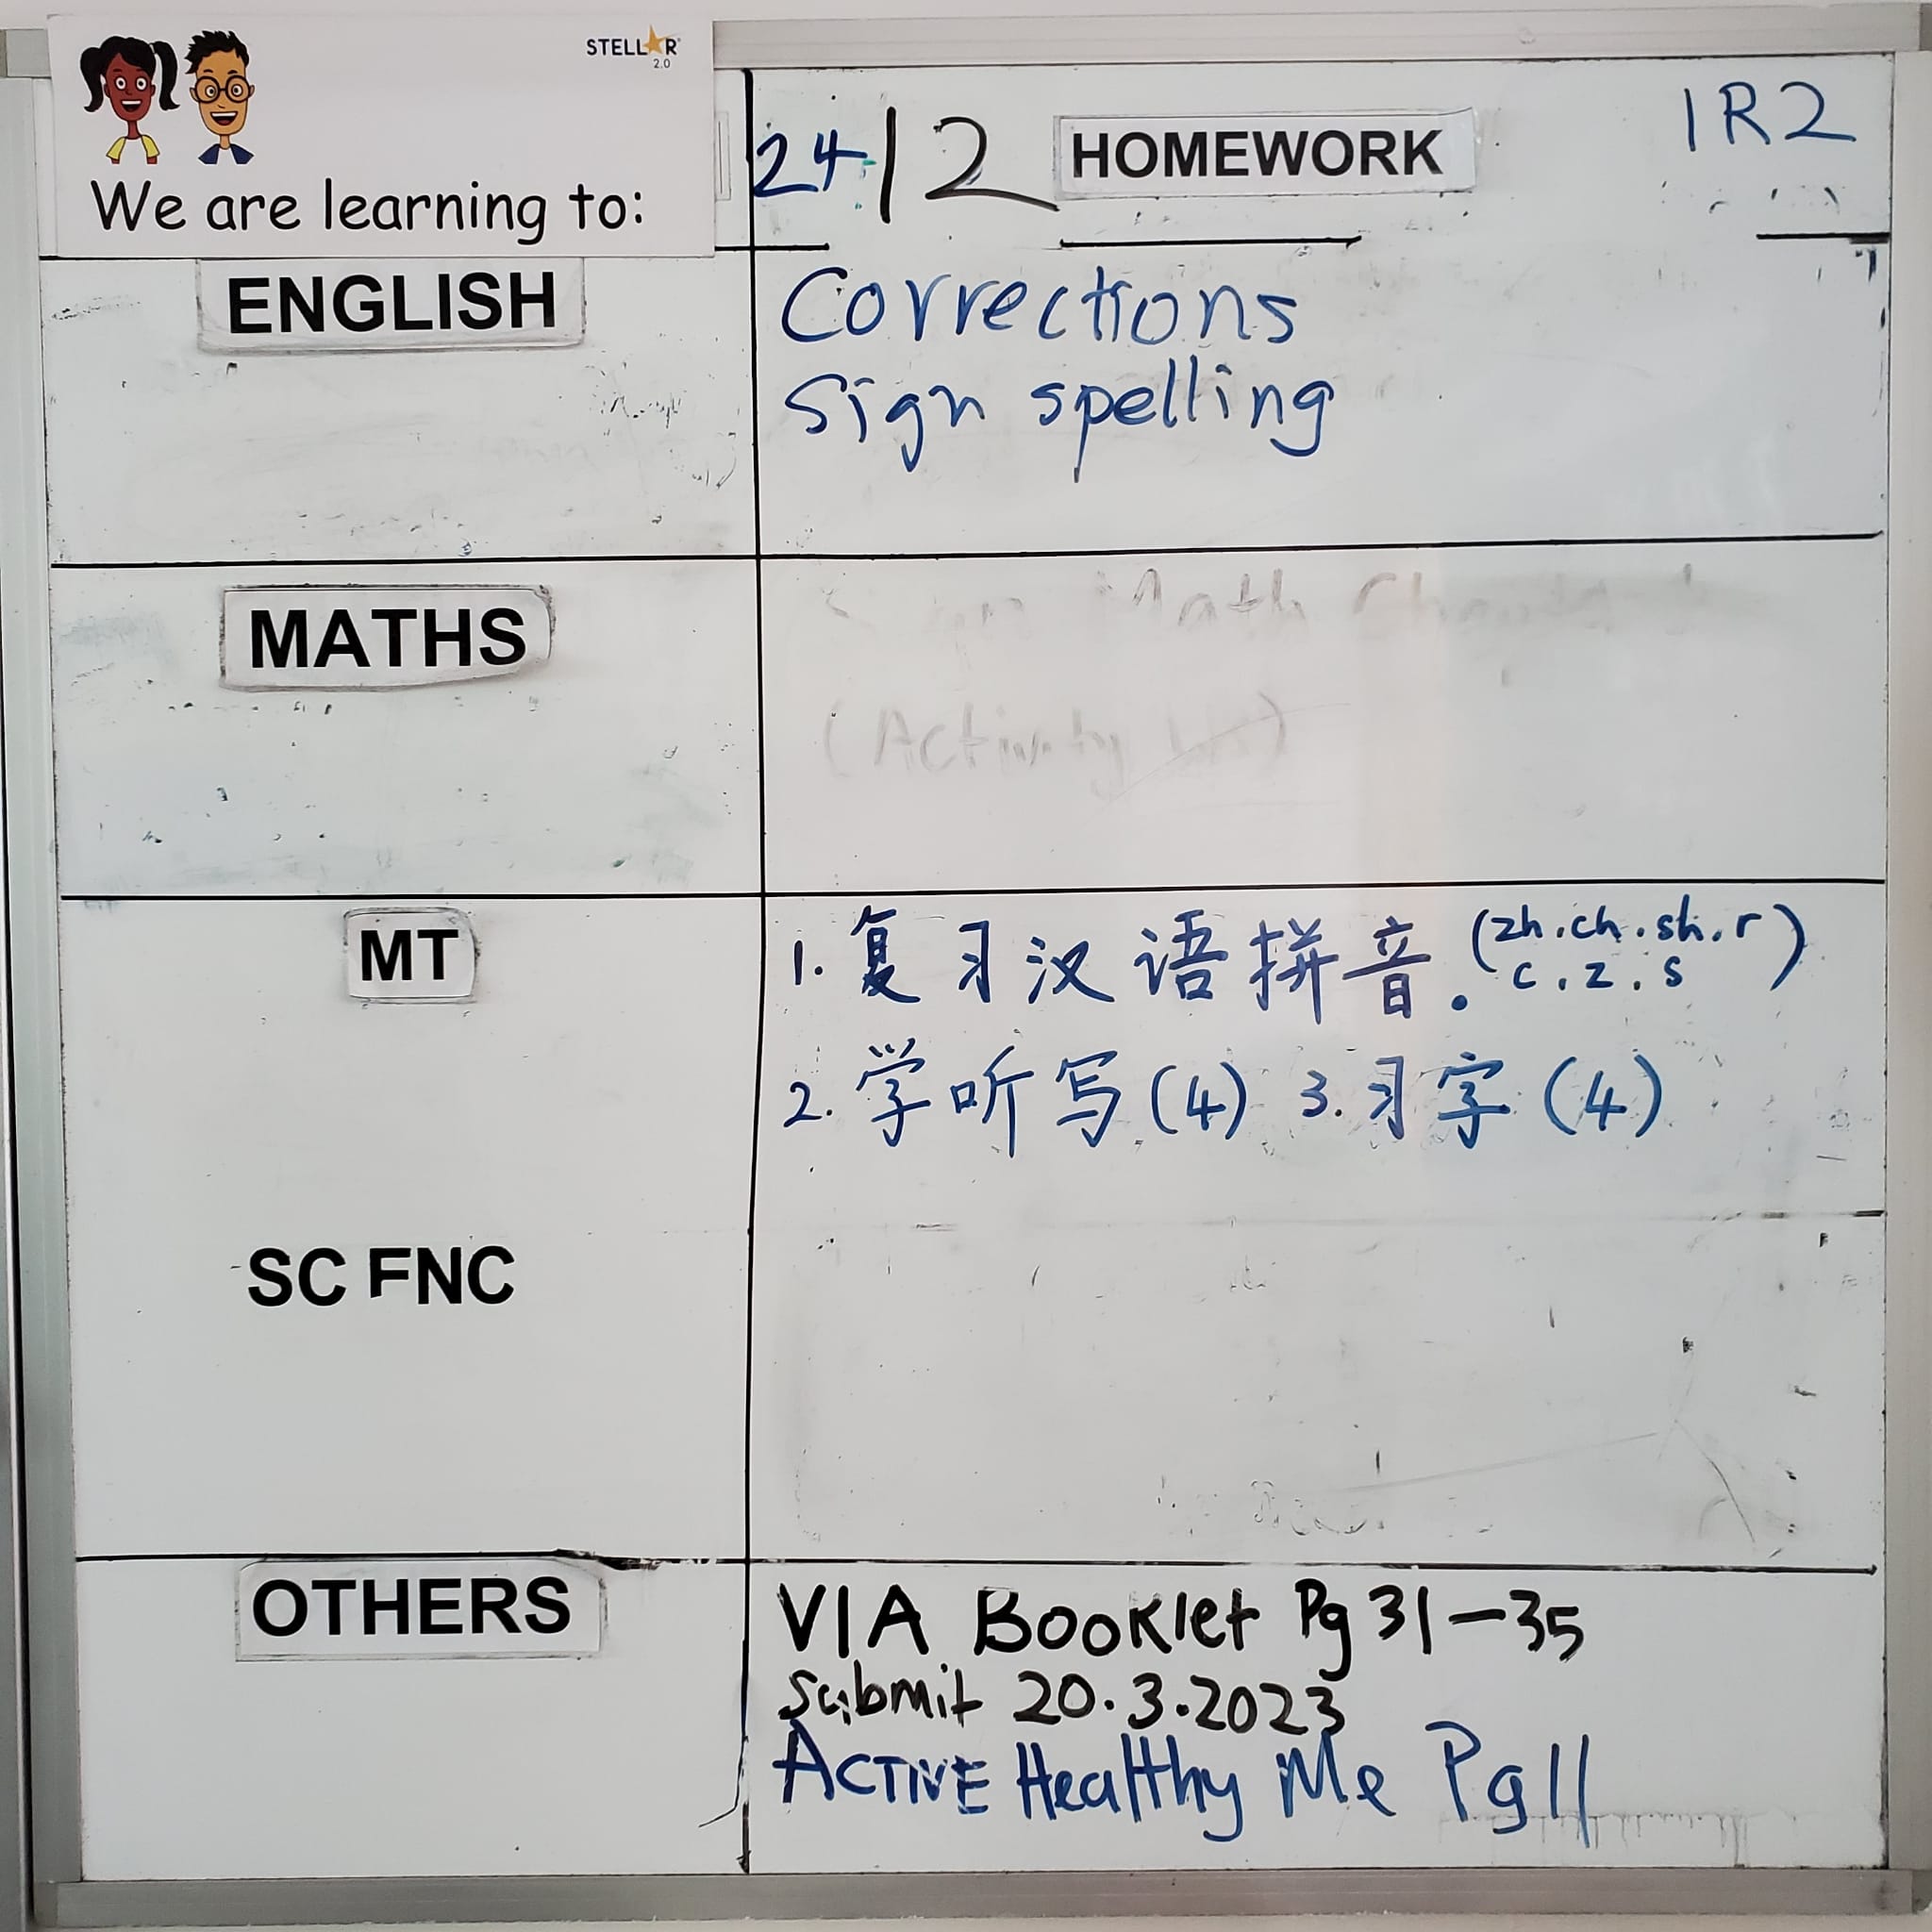 STELLAR
2.0
We are learning to:
24/2 HOMEWORK 1R2
ENGLISH
Corrections
Sign spelling
MATHS
Math
(Activity
MT
1. 复习汉语拼音. (zh.ch.sh.r
c.z.s)
2. 学听写(4) 3. 习字(4)
SC FNC
OTHERS
VIA Booklet Pg 31-35
Submit 20.3.2023
ACTIVE Healthy Me Pg11